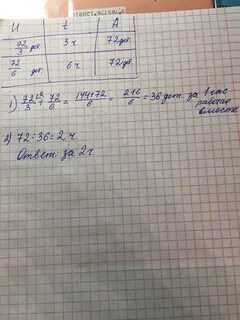 И t A
72/3 дет. 3ч 72 дет.
72/6 дет. 6ч 72 дет.
1) 72/3 + 72/6 = 144+72/6 = 216/6 = 36 дет. за 1 час
работая
вместе
2) 72:36=2ч
Ответ: за 2ч